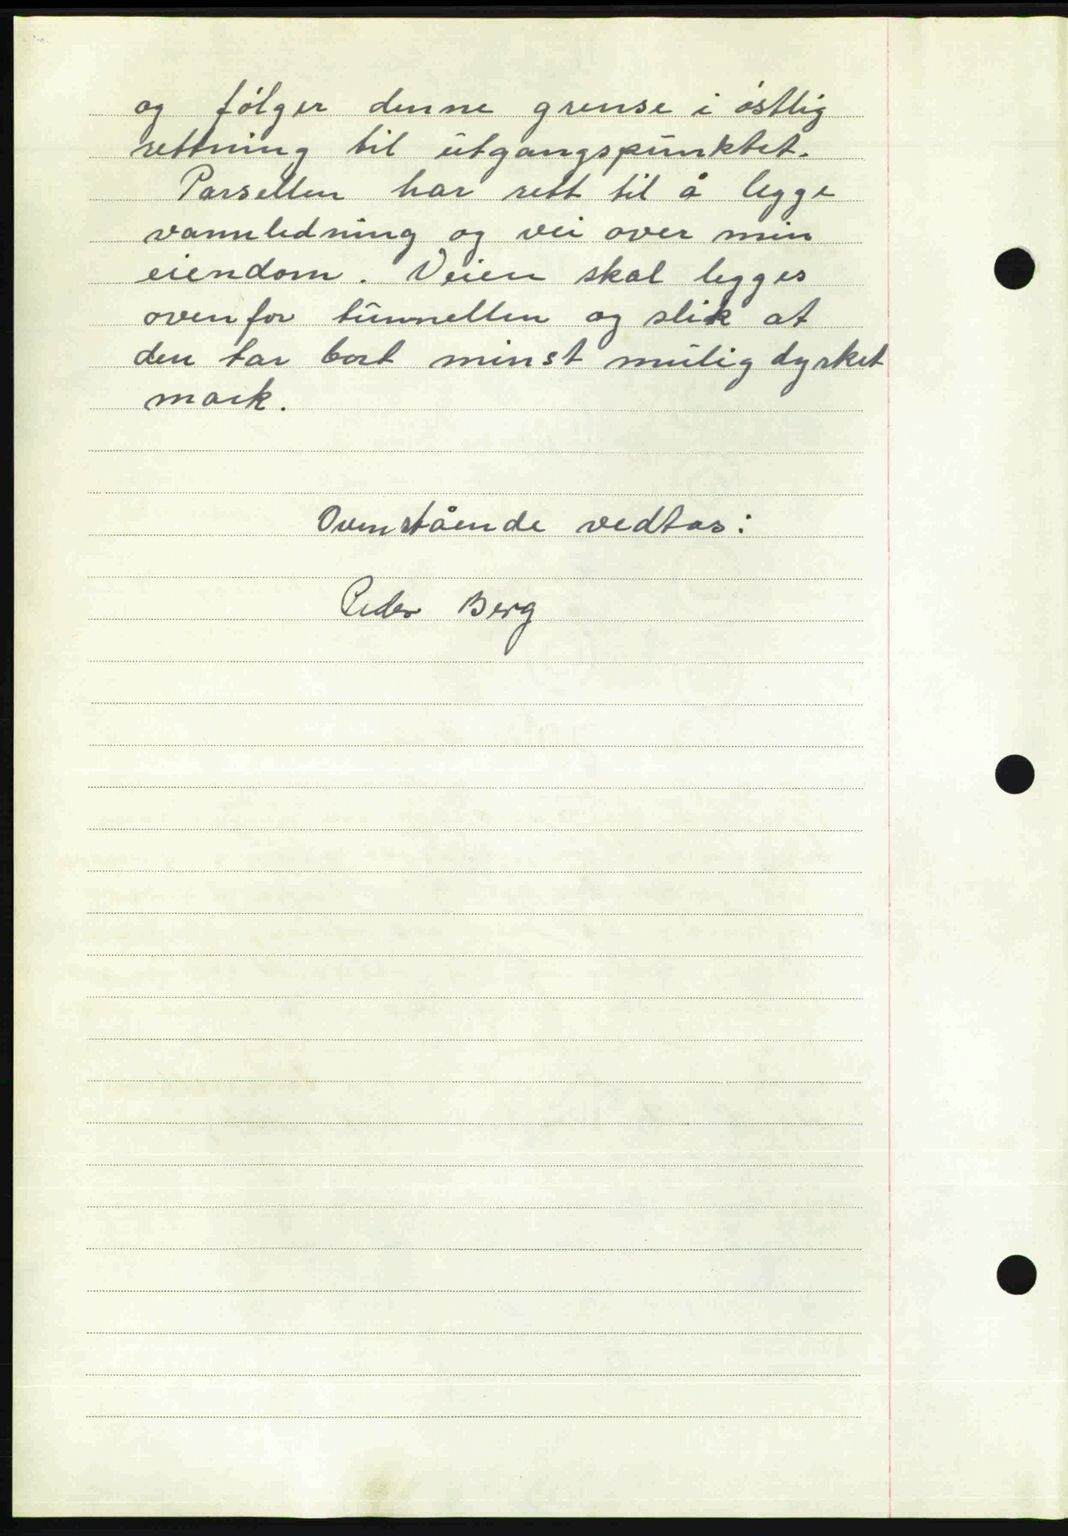 og følger denne grense i østlig
rettning til utgangspunktet.
Parsellen har rett til å legge
vannledning og vei over min
eiendom. Veien skal legges
ovenfor tunnellen og slik at
den tar bort minst mulig dyrket
mark.
Ovenstående vedtas:
Peder Berg